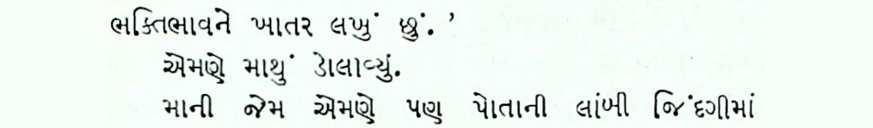 ભક્તિભાવને ખાતર લખું છું.’
એમણે માથું ડોલાવ્યું.
માની જેમ એમણે પણ પોતાની લાંબી જિંદગીમાં